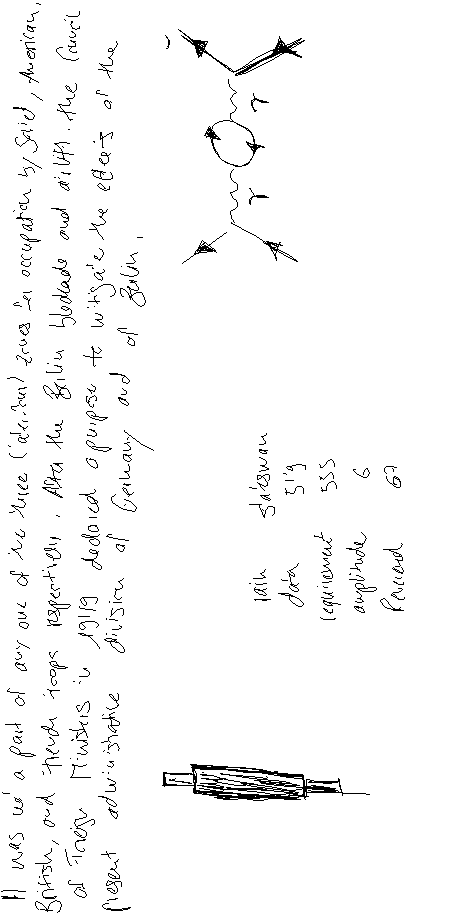 It was not a part of any one of the three (later four) zones for occupation by Soviet, American,
British, and French troops respectively. After the Berlin blockade and airlift, the Council
of Foreign Ministers in 1949 declared a purpose to mitigate the effects of the
present administrative division of Germany and of Berlin.
γ γ
rain statesman
data 519
requirement 535
amplitude 6
Reverend 67